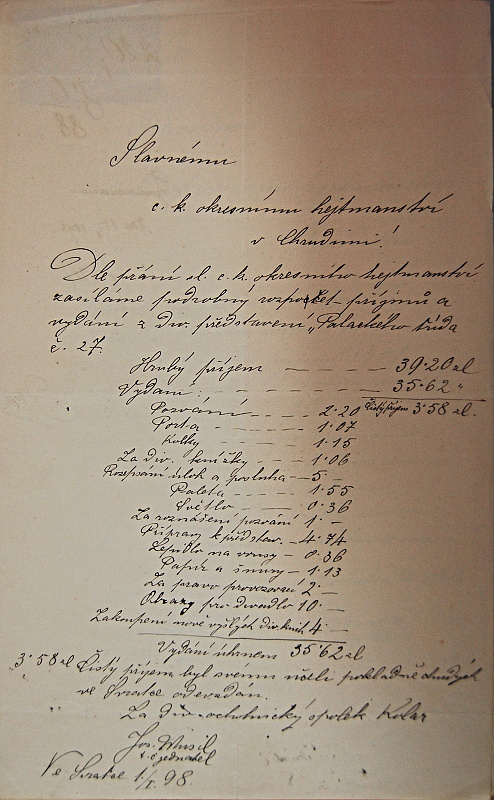 Slavnému
c. k. okresnímu hejtmanství
v Chrudimi!
Dle přání sl. c. k. okresního hejtmanství
zasíláme podrobný rozpočet příjmů a
vydání z div. představení „Palackého třída
č. 27.
Hrubý příjem — — — 39·20 zl
Vydání: — — — 35·62 "
Čistý příjem 3·58 zl.
Pozvání — — — 2·20
Porta — — — 1·07
Kolky — — — 1·15
Za div. knížky — — 1·06
Rozepsání úloh a posluha — 5 —
Paleta — — — 1·55
Světlo — — — 0·36
Za roznášení pozvání 1·—
Přípravy k představ. — 4·74
Lepidlo na vousy — 0·36
Papír a šňůry — 1·13
Za pravo provozovací 2·—
Obrazy pro divadlo 10·—
Zakoupení nově vyšlých div. knih 4·—
Vydání úhrnem 35·62 zl
3·58 zl Čistý příjem byl svému účeli pokladně chudých
ve Svratce odevzdán.
Za div. ochotnický spolek Kolar
Jos. Musil
t. č. jednatel
Ve Svratce 1/I. 98.